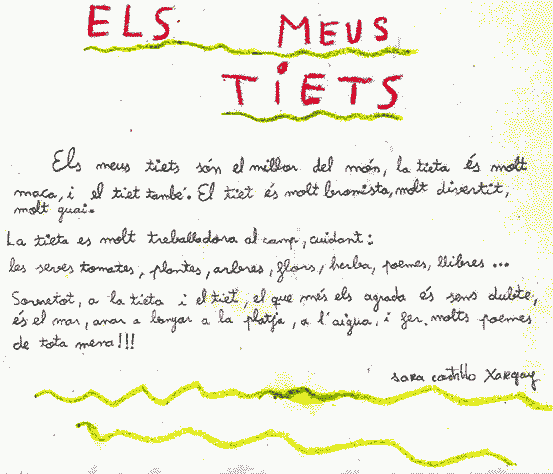 ELS MEUS
TiETS
Els meus tiets són el millor del món, la tieta és molt
maca, i el tiet també. El tiet és molt bromista, molt divertit,
molt guai.
La tieta es molt treballadora al camp, cuidant:
les seves tomates, plantes, arbres, flors, herba, poemes, llibres ...
Sobretot, a la tieta i el tiet, el que més els agrada és sens dubte,
és el mar, anar a la platja, a l'aigua, i fer molts poemes
de tota mena!!!
sara castillo Xargay